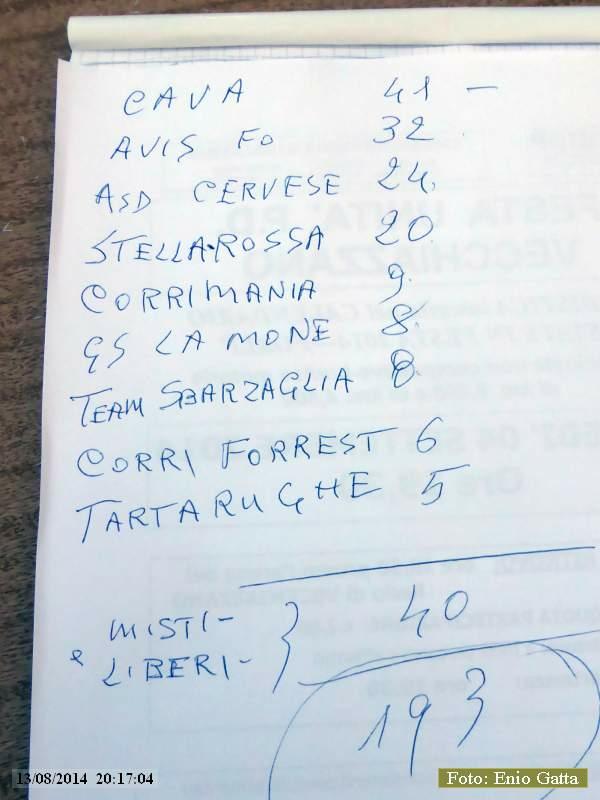 CAVA 41 -
AVIS FO 32
ASD CERVESE 24.
STELLA ROSSA 20.
CORRIMANIA 9.
GS LA MONE 8.
TEAM SBARZAGLIA 8
CORRI FORREST 6
TARTARUGHE 5
MISTI-
& LIBERI- } 40
193
13/08/2014 20:17:04
Foto: Enio Gatta